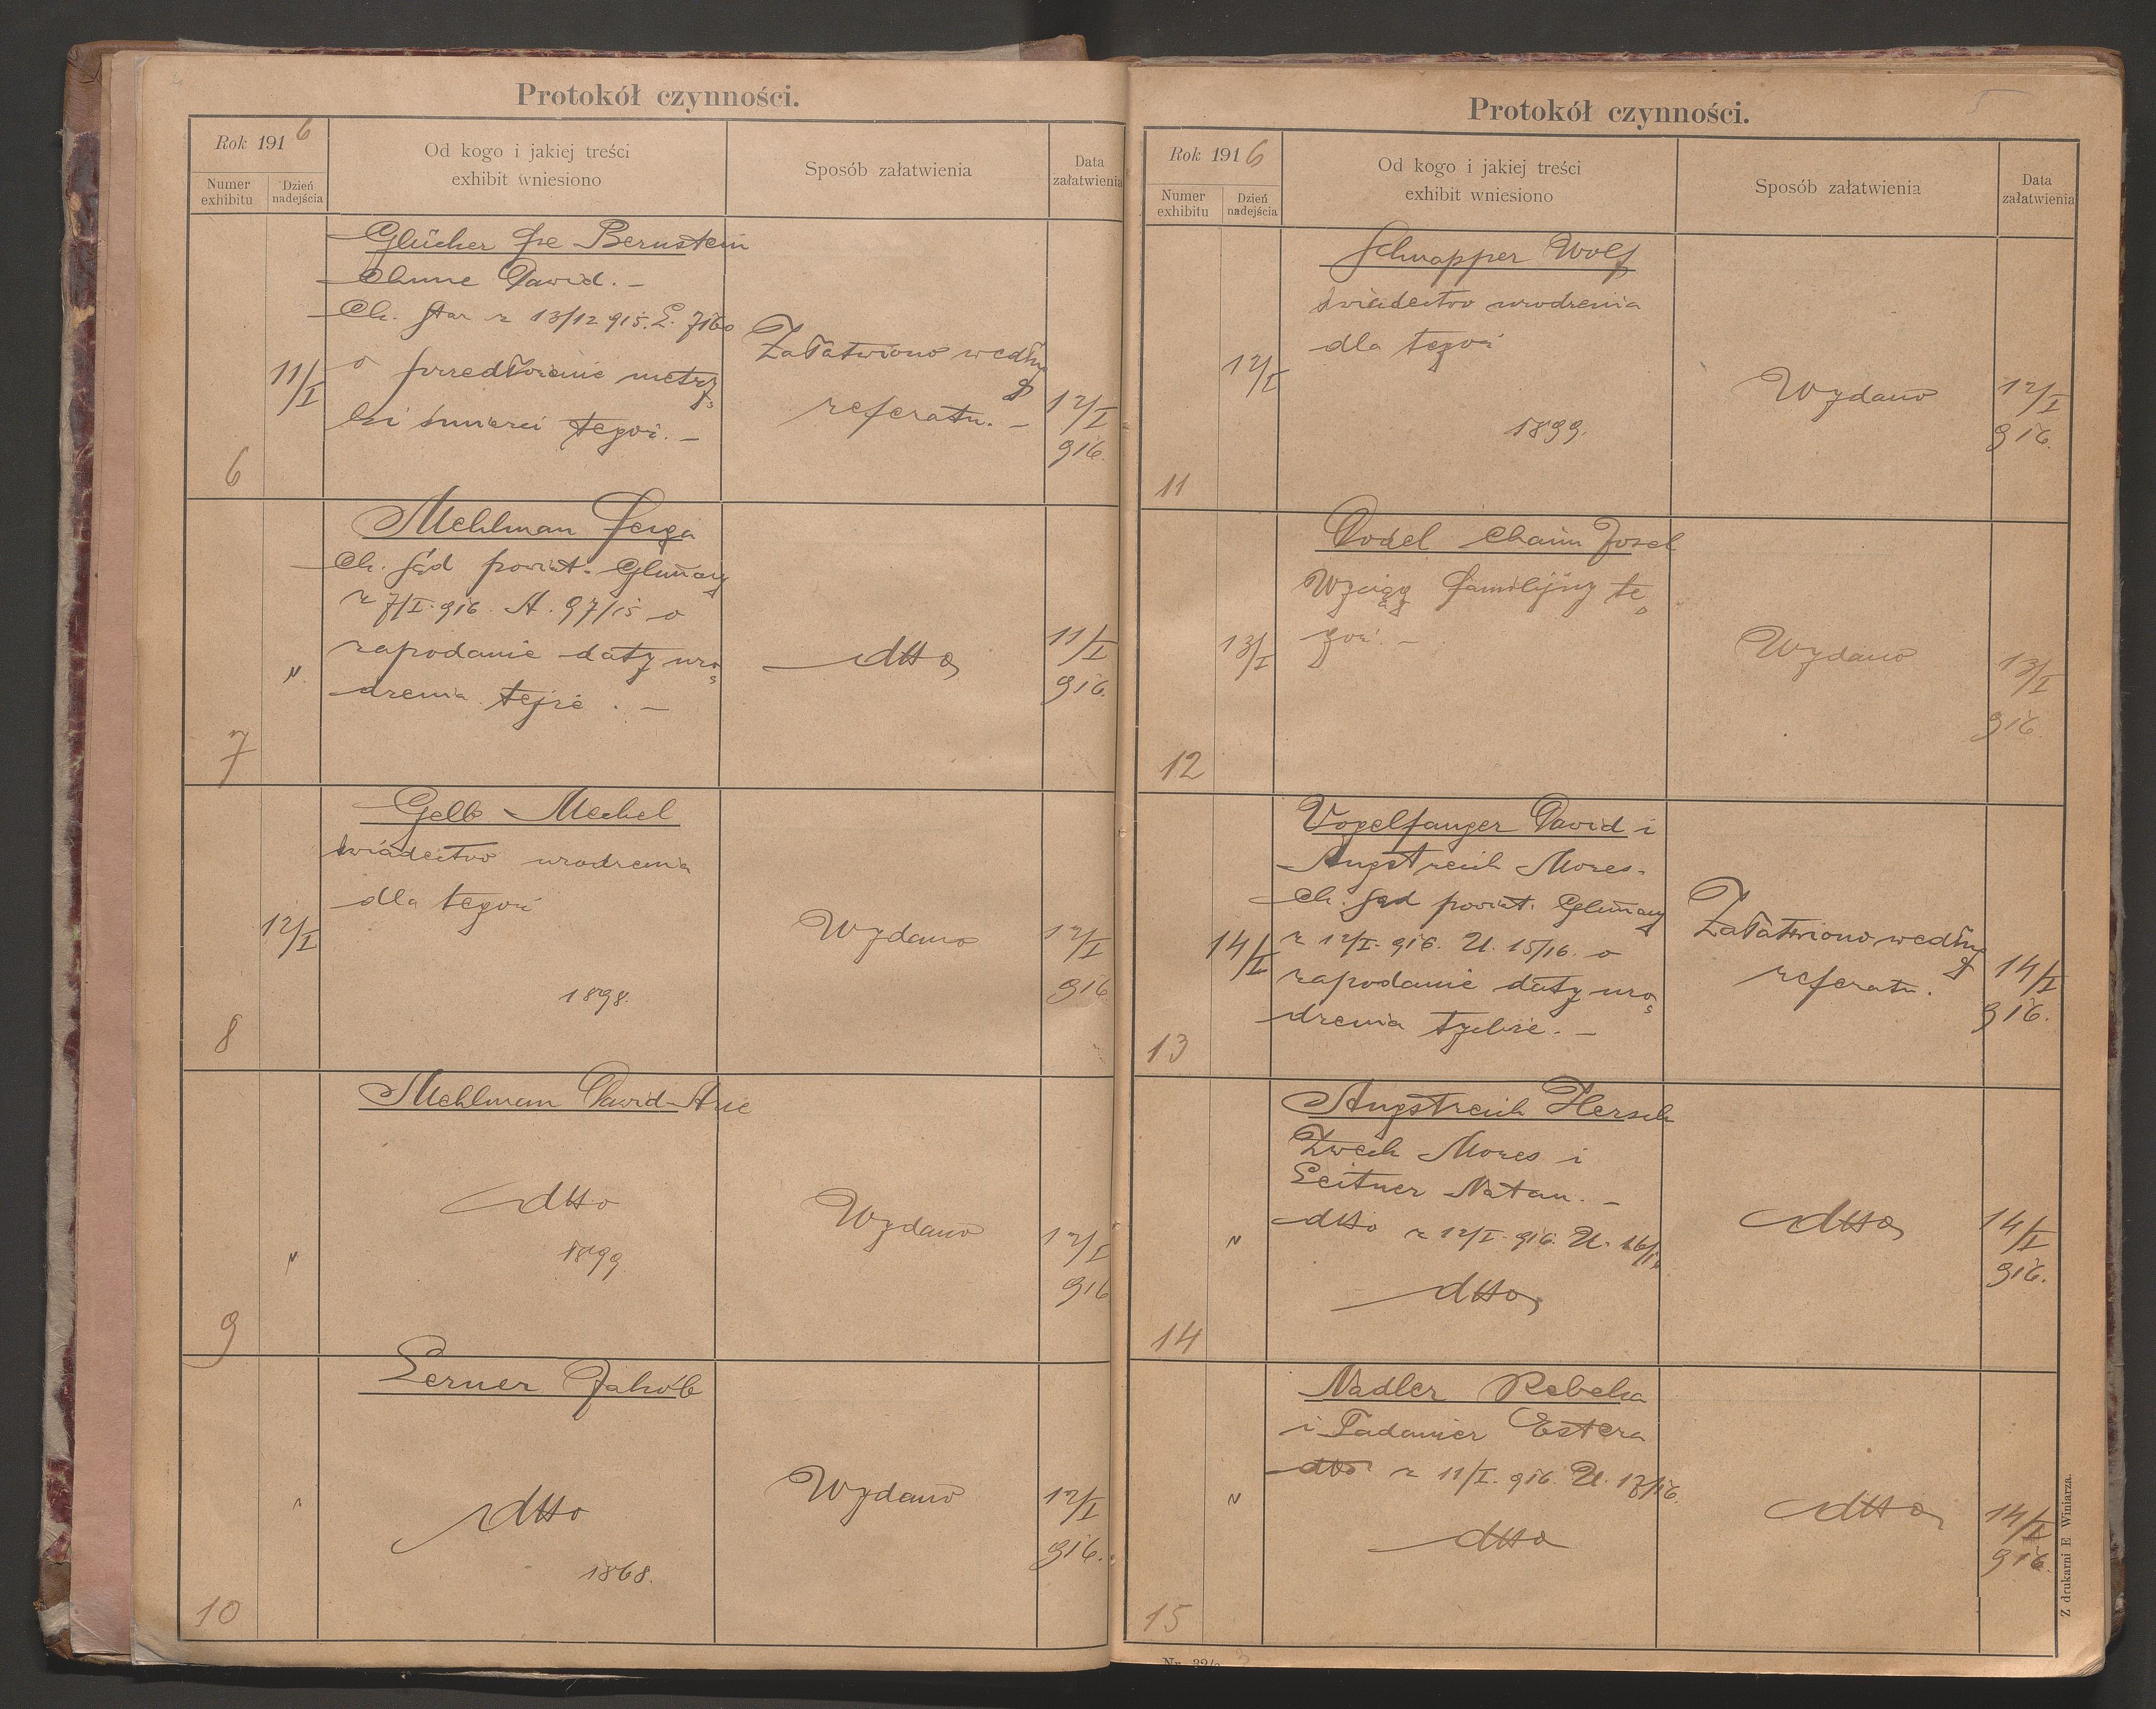 Protokół czynności.
Rok 1916
Numer exhibitu
Dzień nadejścia
Od kogo i jakiej treści
exhibit wniesiono
Sposób załatwienia
Data
załatwienia
Glücher Bernstein
Chune Dawid. –
Ck. Star z 13/12 915. L. 7160
o przedłożenie metry
ki śmierci tegoż. –
11/I
6
Załatwiono według
referatu. –
12/I
916.
Mehlman Feiga
Ck. Sąd powiat. Gliniany
z 7/I. 916. A. 97/15 o
zapodanie daty uro
dzenia tejże. –
"
7
dtto
11/I
916.
Gelb Mechel
świadectwo urodzenia
dla tegoż
12/I
1898.
8
Wydano
12/I
916
Mehlman Dawid Arie
dtto
1899
"
9
Wydano
12/I
916
Lerner Jakób
dtto
1868.
"
10
Wydano
12/I
916.
Protokół czynności.
5
Rok 1916
Numer exhibitu
Dzień nadejścia
Od kogo i jakiej treści
exhibit wniesiono
Sposób załatwienia
Data
załatwienia
Schnapper Wolf
świadectwo urodzenia
dla tegoż
12/I
1899.
11
Wydano
12/I
916.
Chaim Josel
Wyciąg familijny te
goż. –
13/I
12
Wydano
13/I
916.
Vogelfanger Dawid i
Angstreich Mozes.
Ck. Sąd powiat. Gliniany
z 12/I. 916. U. 15/16. o
zapodanie daty uro
dzenia tychże. –
14/I
13
Załatwiono według
referatu.
14/I
916.
Angstreich Hersch
Zwech Mozes i
Leitner Natan. –
dtto z 12/I. 916. U. 16/16
dtto
"
14
dtto
14/I
916.
Nadler Rebeka
i Tadanier Estera
dtto z 11/I. 916. U. 17/16.
dtto
"
15
dtto
14/I
916
Z drukarni E Winiarza.